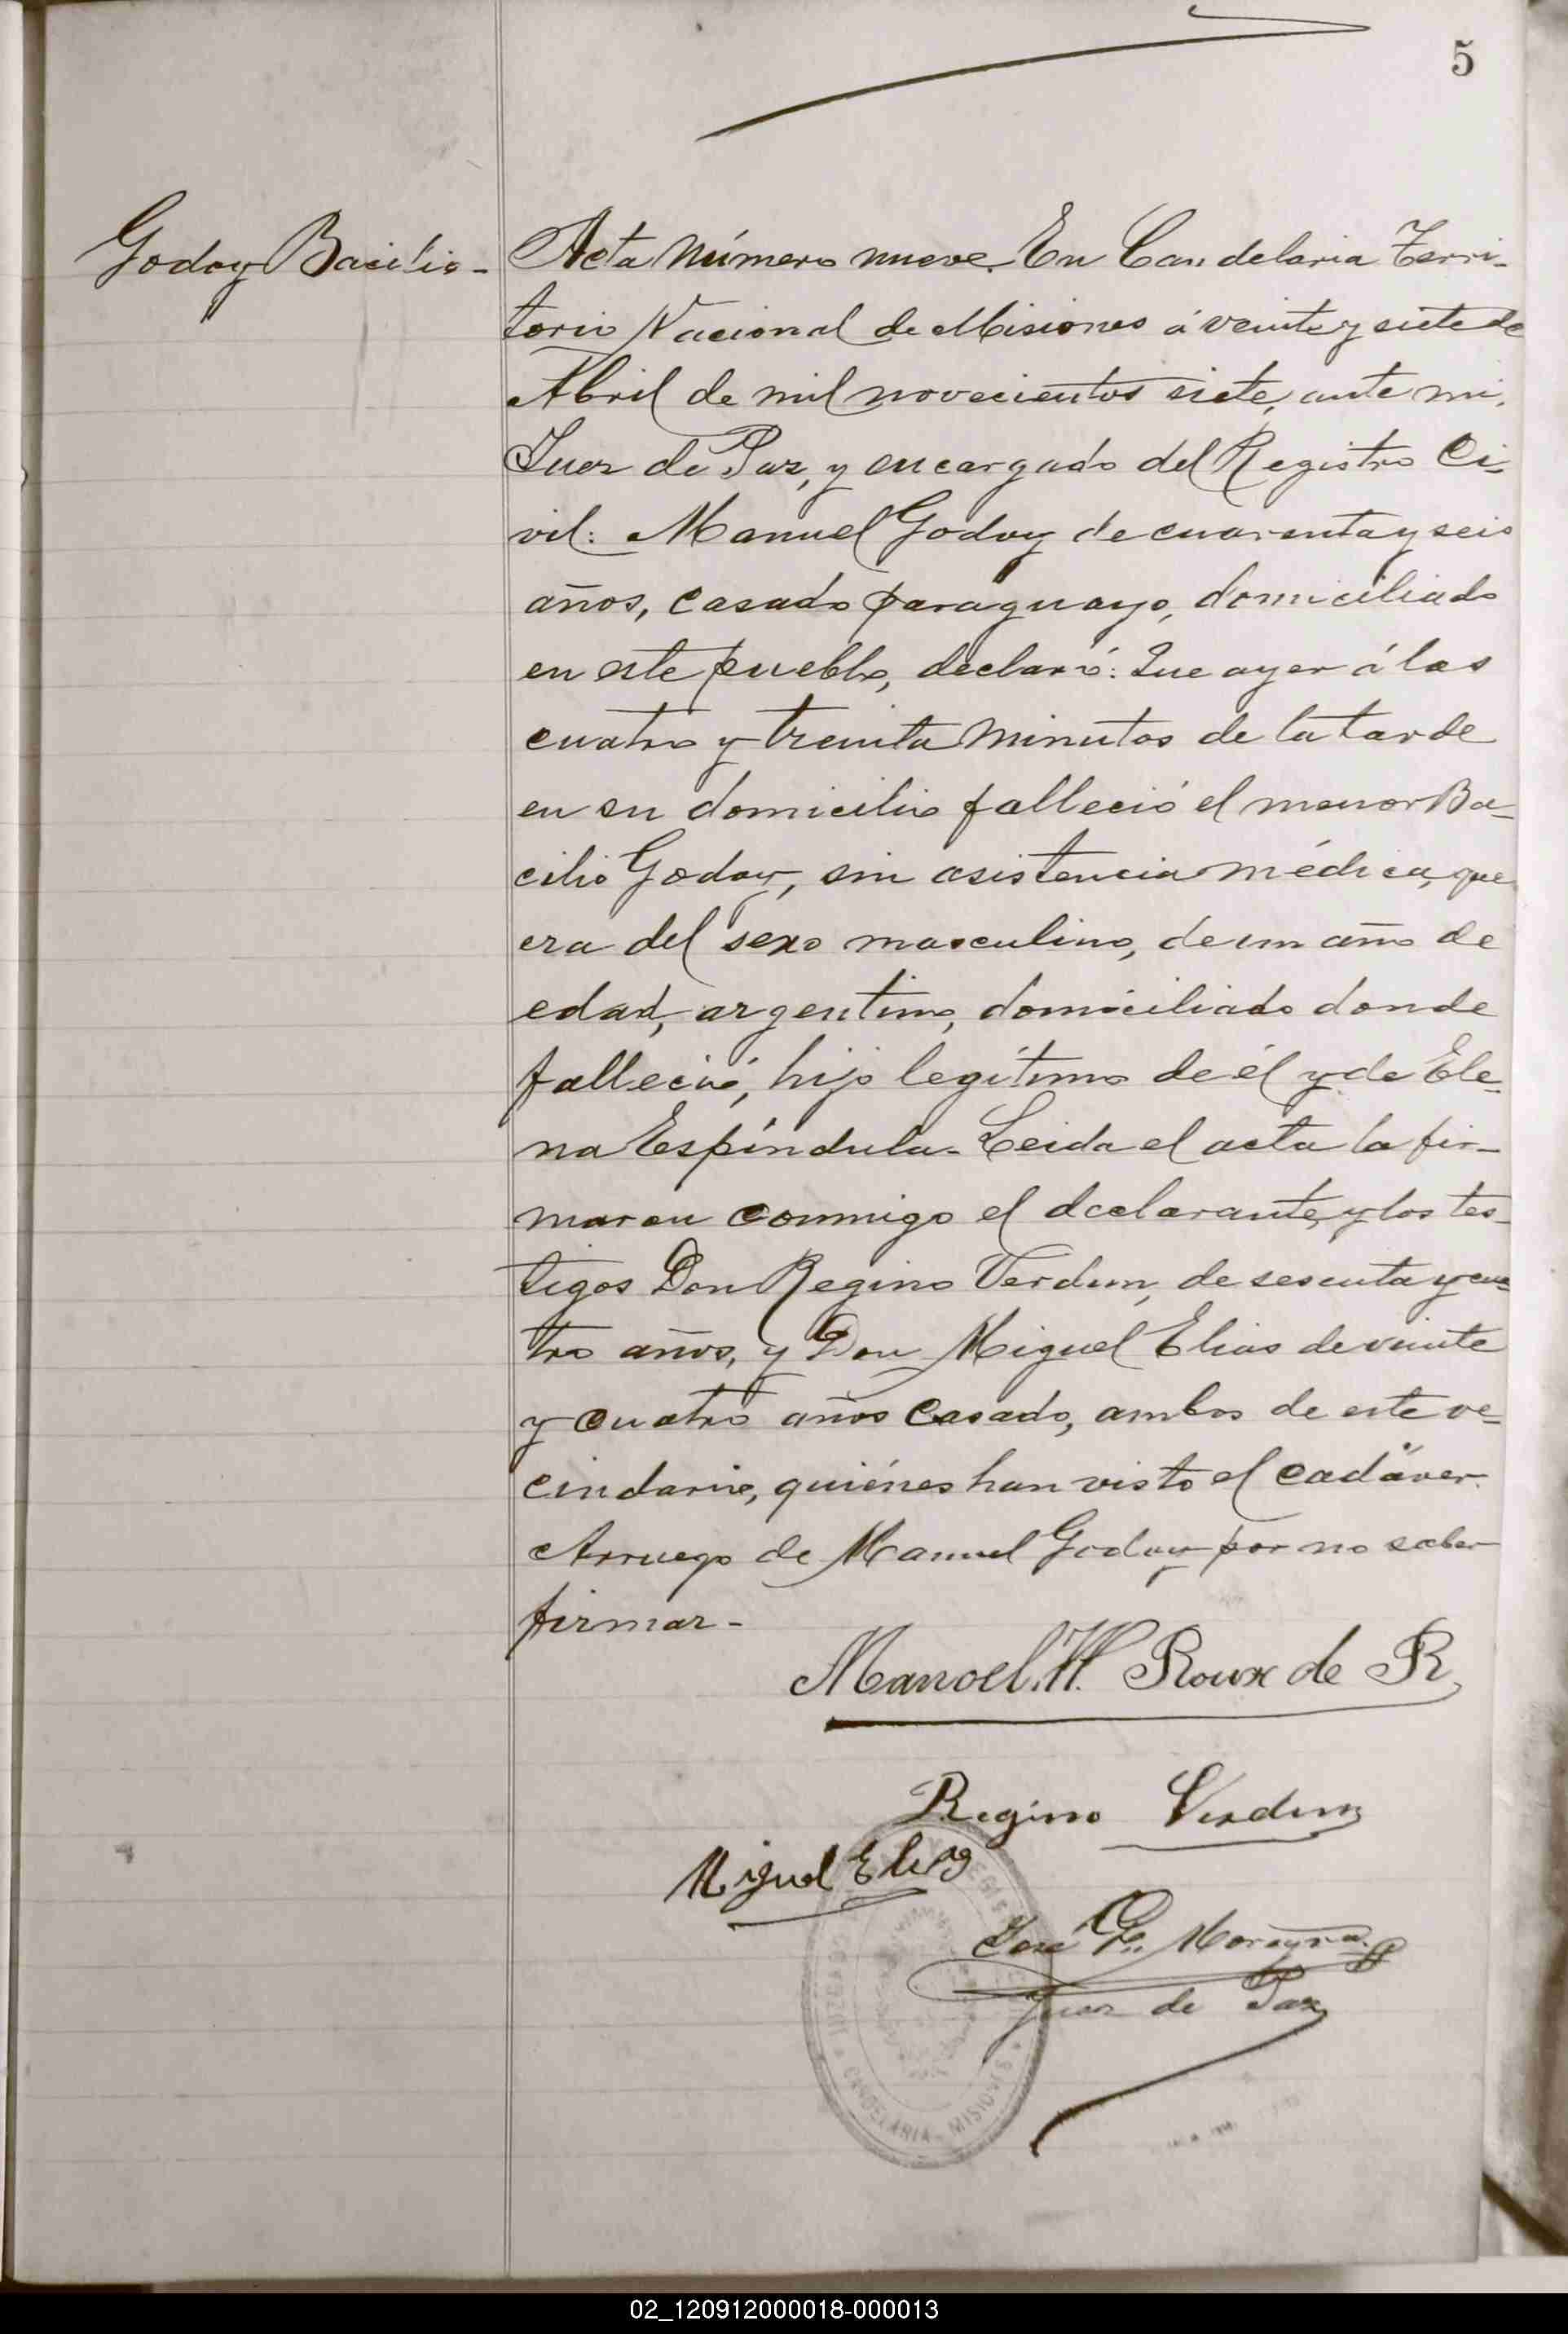 5
Godoy Bacilio-
Acta Número nueve. En Candelaria Terri-
torio Nacional de Misiones á veinte y siete de
Abril de mil novecientos siete, ante mi,
Juez de Paz, y encargado del Registro Ci-
vil: Manuel Godoy de cuarenta y seis
años, casado paraguayo, domiciliado
en este pueblo, declaró: Que ayer á las
cuatro y treinta minutos de la tarde
en su domicilio falleció el menor Ba-
cilio Godoy, sin asistencia médica, que
era del sexo masculino, de un año de
edad, argentino, domiciliado donde
falleció, hijo legítimo de él y de Ele-
na Espíndula. Leida el acta la fir-
maron conmigo el declarante, y los tes-
tigos Don Regino Verdun, de sesenta y cua-
tro años, y Don Miguel Elias de veinte
y cuatro años casado, ambos de este ve-
cindario, quiénes han visto el cadáver.
Arruego de Manuel Godoy por no saber
firmar-
Manoel. H. Roux de R
Regino Verdun
Miguel Elias
José G. Moreyra
Juez de Paz
JUZGADO
CANDELARIA - MISIONES
02_120912000018-000013